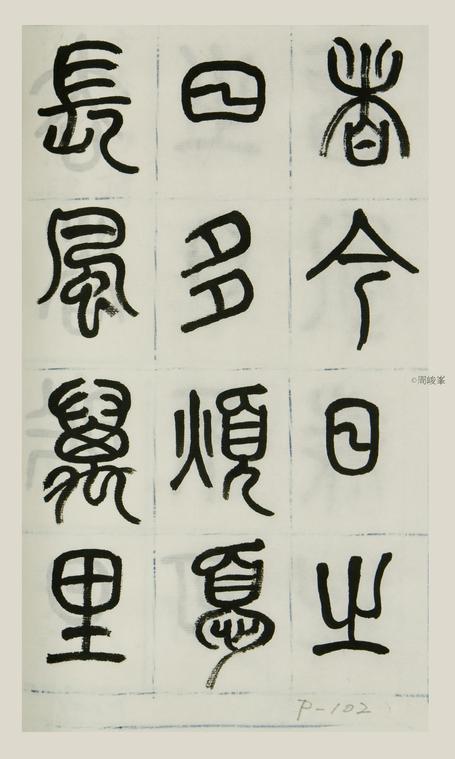 者今日之
日多煩憂
長風萬里
©周峻峯
P-102